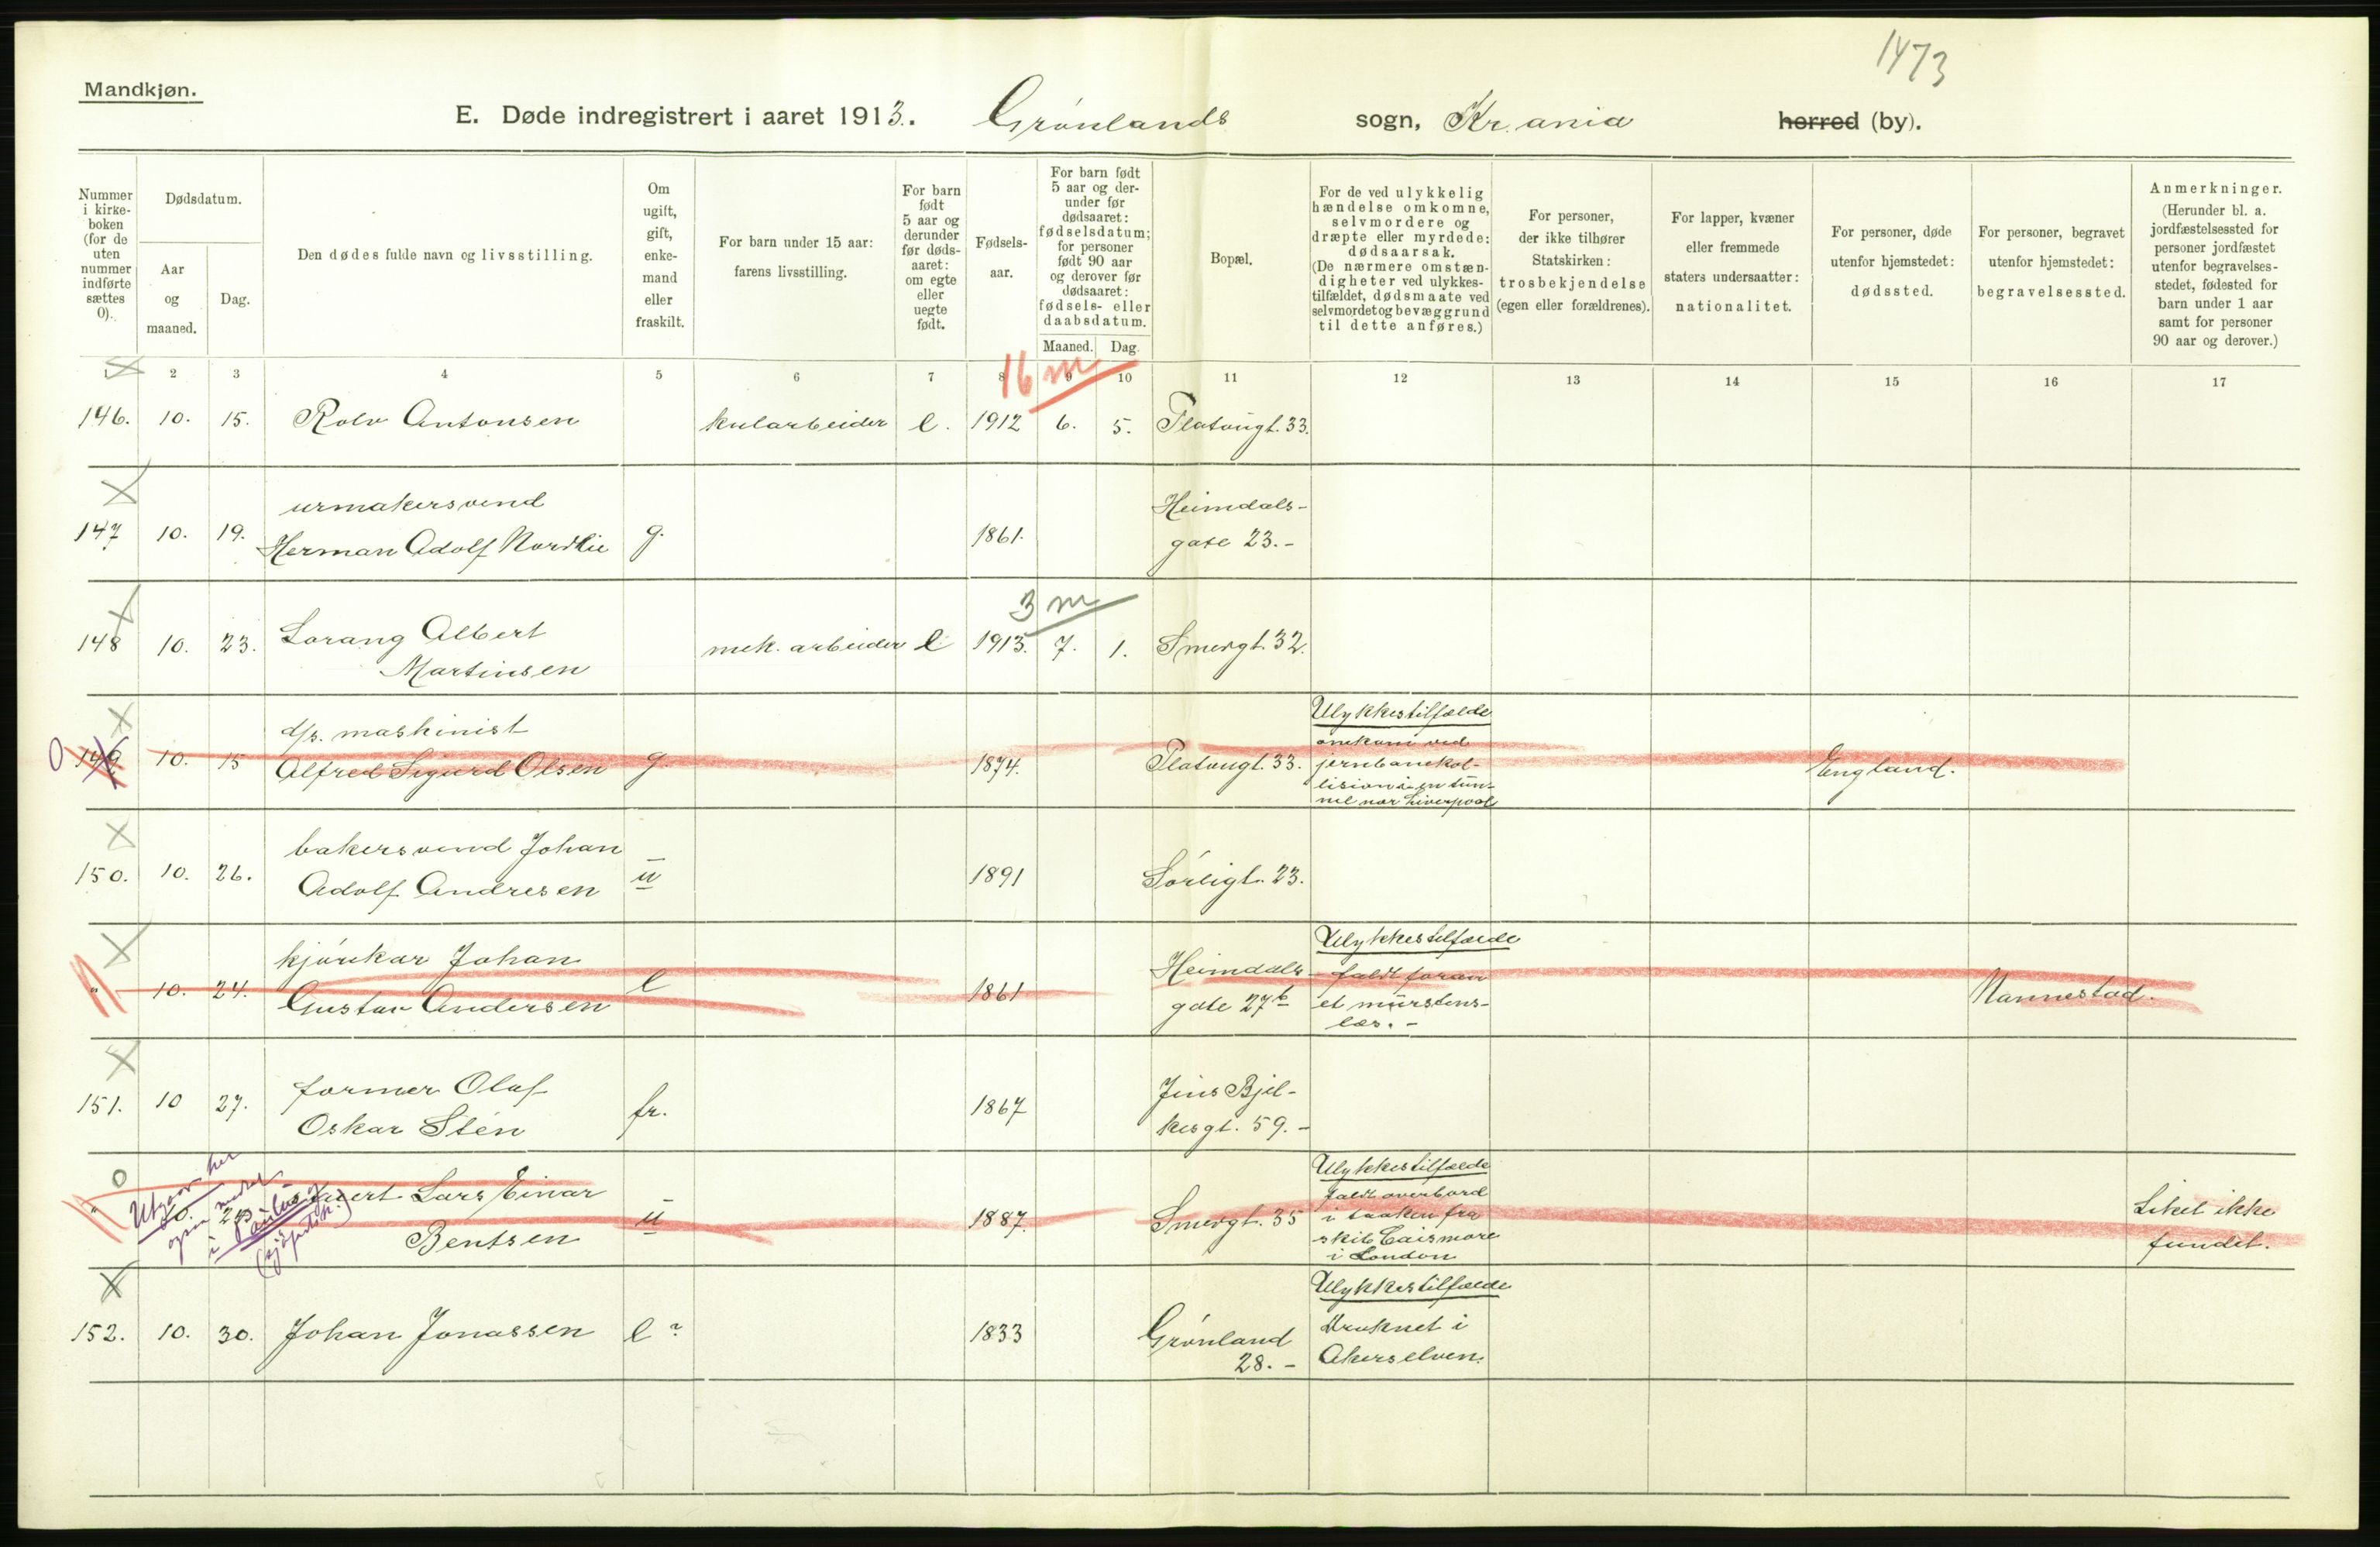 1473
Mandkjøn.
E. Døde indregistrert i aaret 1913. Grønlands sogn, Kr.ania herred (by).
Nummer i kirke-boken (for de uten nummer indførte sættes 0).
Dødsdatum.
Aar og maaned.
Dag.
Den dødes fulde navn og livsstilling.
Om ugift, gift, enke-mand eller fraskilt.
For barn under 15 aar: farens livsstilling.
For barn født 5 aar og derunder før døds-aaret: om egte eller uegte født.
Fødsels-aar.
For barn født 5 aar og der-under før dødsaaret: fødselsdatum; for personer født 90 aar og derover før dødsaaret: fødsels- eller daabsdatum.
Maaned. Dag.
Bopæl.
For de ved ulykkelig hændelse omkomne, selvmordere og dræpte eller myrdede: dødsaarsak. (De nærmere omstæn-digheter ved ulykkes-tilfældet, dødsmaate ved selvmordet og bevæggrund til dette anføres.)
For personer, der ikke tilhører Statskirken: trosbekjendelse (egen eller forældrenes).
For lapper, kvæner eller fremmede staters undersaatter: nationalitet.
For personer, døde utenfor hjemstedet: dødssted.
For personer, begravet utenfor hjemstedet: begravelsessted.
Anmerkninger. (Herunder bl. a. jordfæstelsessted for personer jordfæstet utenfor begravelses-stedet, fødested for barn under 1 aar samt for personer 90 aar og derover.)
1 2 3 4 5 6 7 8 9 10 11 12 13 14 15 16 17
16 m
146. 10. 15. Rolv Antonsen kularbeider e. 1912 6. 5. Platougt. 33.
urmakersvend Heimdals-
147 10. 19. Herman Adolf Nordlie g. 1861. gate 23.-
3 m
148 10. 23. Lorang Albert mek. arbeider e 1913. 7. 1. Smergt. 32.
Martinsen
d/s. maskinist Ulykkestilfælde
omkom ved
0 149 10. 15 Alfred Sigurd Olsen g 1874. Platougt. 33. jernbanekol- England.
lision i en tun-
nel nær Liverpool
bakersvend Johan
150. 10. 26. Adolf Andresen u 1891 Sörligt. 23.
kjörekar Johan Heimdals- Ulykkestilfælde
faldt foran
" 10. 24. Gustav Andersen e 1861 gate 27b et mürstens- Nannestad.
læs. -
former Olaf Jens Bjel-
151. 10 27. Oskar Stén fr. 1867 kesgt. 59. -
0 Utgaar her
i
Lars Einar Ulykkestilfælde
faldt overbord
" 10. Bentsen u 1887. Smergt. 35 i taaken fra Liket ikke
skib Cairnmore fundet.
i London
Ulykkestilfælde
152. 10. 30. Johan Jonassen e ? 1833 Grönland Druknet i
28. - Akerselven.